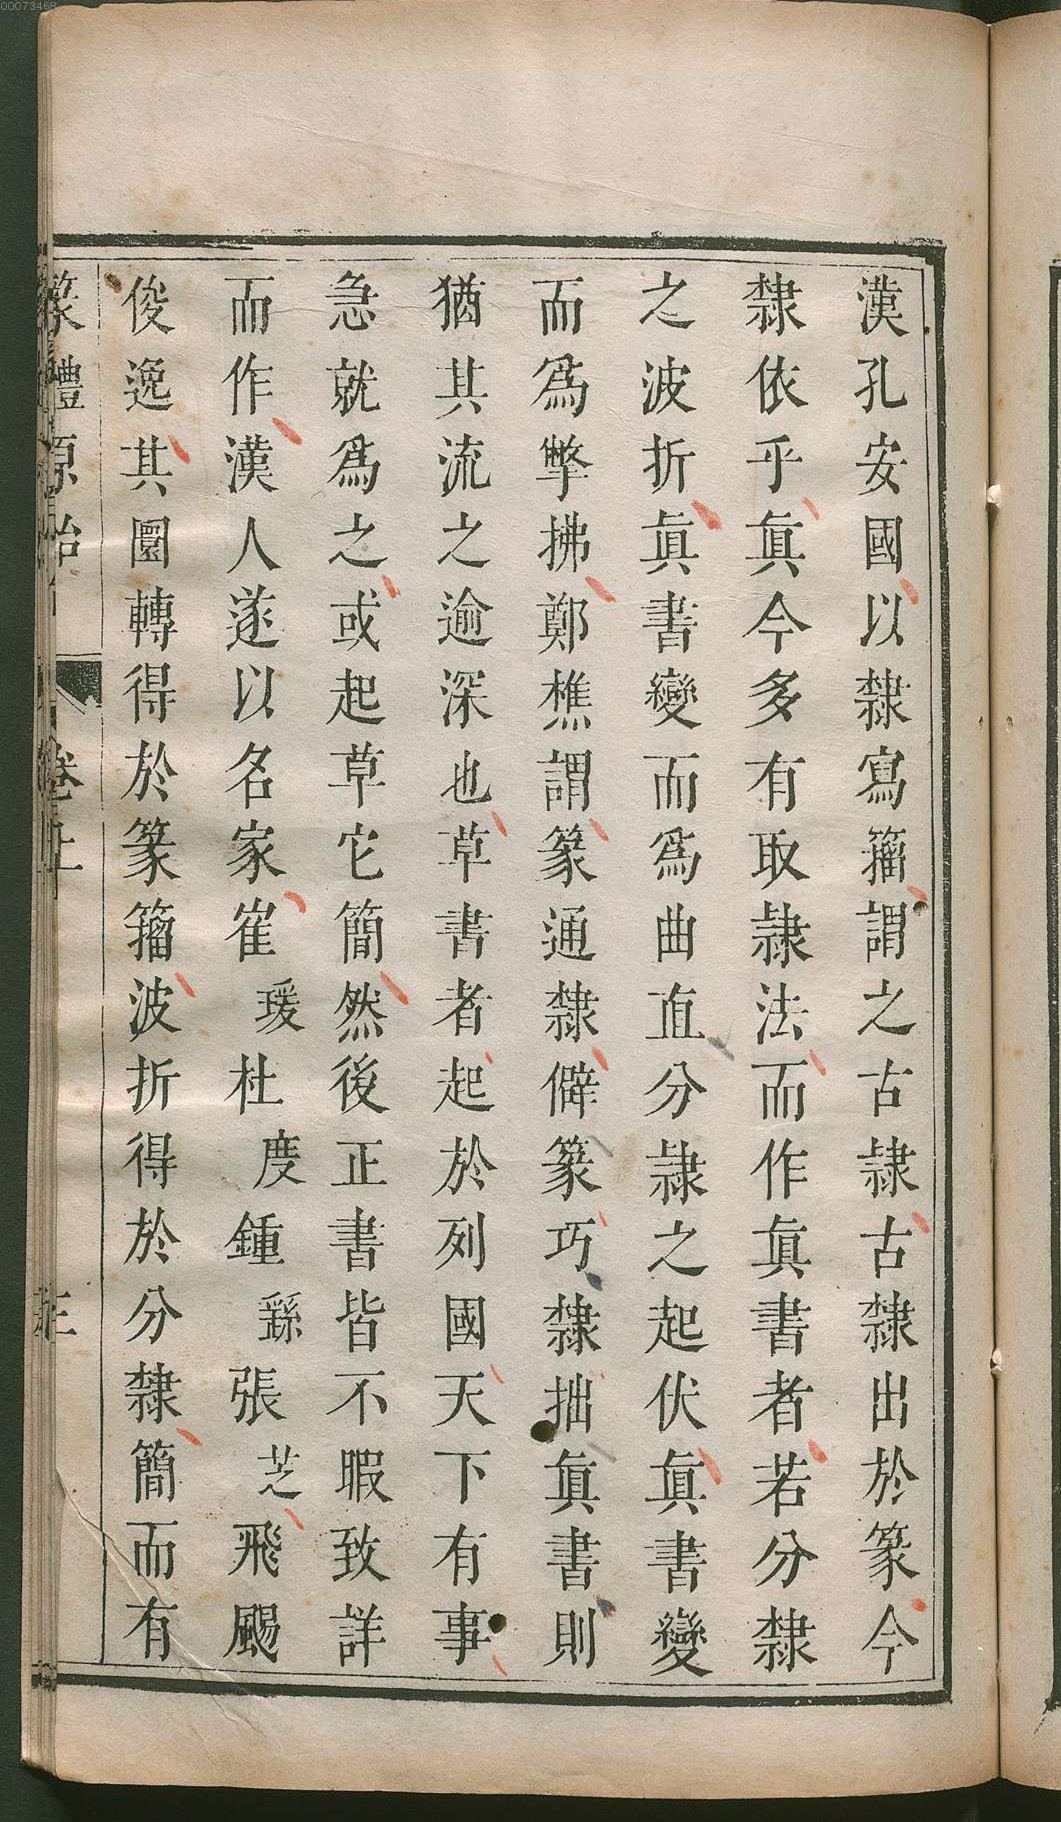 漢孔安國以隸寫籒謂之古隸古隸出於篆今
隸依乎眞今多有取隸法而作眞書者若分隸
之波折眞書變而爲曲直分隸之起伏眞書變
而爲撆拂鄭樵謂篆通隸僻篆巧隸拙眞書則
猶其流之逾深也草書者起於列國天下有事
急就爲之或起草它簡然後正書皆不暇致詳
而作漢人遂以名家崔瑗杜度鍾繇張芝飛颺
俊逸其圜轉得於篆籒波折得於分隸簡而有
篆體原始 卷上 三
00073468